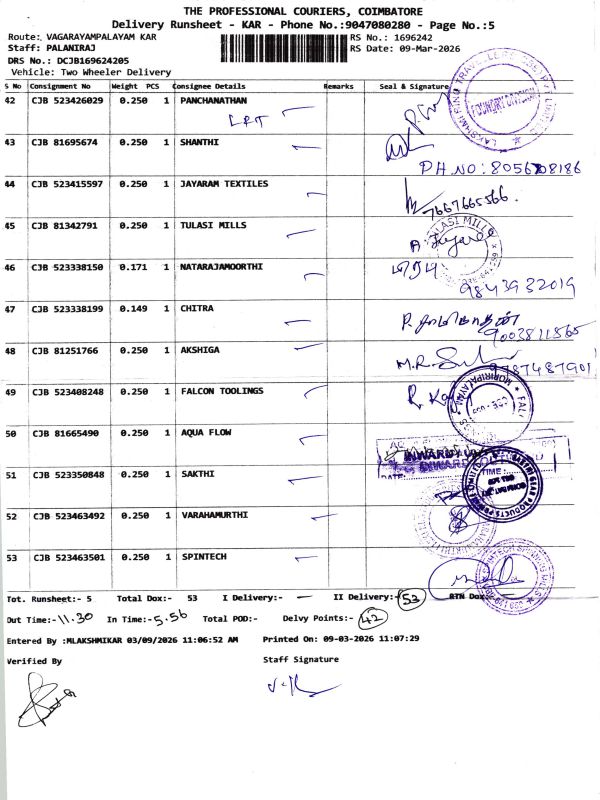 THE PROFESSIONAL COURIERS, COIMBATORE
Delivery Runsheet - KAR - Phone No.:9047080280 - Page No.:5
Route: VAGARAYAMPALAYAM KAR
RS No.: 1696242
Staff: PALANIRAJ
RS Date: 09-Mar-2026
DRS No.: DCJB169624205
Vehicle: Two Wheeler Delivery
S No Consignment No Weight PCS Consignee Details Remarks Seal & Signature
42 CJB 523426029 0.250 1 PANCHANATHAN
43 CJB 81695674 0.250 1 SHANTHI
PH.NO: 8056708186
44 CJB 523415597 0.250 1 JAYARAM TEXTILES
7667665566
45 CJB 81342791 0.250 1 TULASI MILLS
46 CJB 523338150 0.171 1 NATARAJAMOORTHI
9843932019
47 CJB 523338199 0.149 1 CHITRA
9003811565
48 CJB 81251766 0.250 1 AKSHIGA
M.R.
9787487901
49 CJB 523408248 0.250 1 FALCON TOOLINGS
50 CJB 81665490 0.250 1 AQUA FLOW
INWARD
51 CJB 523350848 0.250 1 SAKTHI
52 CJB 523463492 0.250 1 VARAHAMURTHI
53 CJB 523463501 0.250 1 SPINTECH
Tot. Runsheet:- 5 Total Dox:- 53 I Delivery:- — II Delivery:- 53 RTN Dox:-
Out Time:- 11.30 In Time:- 5.56 Total POD:- Delvy Points:- 42
Entered By :MLAKSHMIKAR 03/09/2026 11:06:52 AM Printed On: 09-03-2026 11:07:29
Verified By
Staff Signature